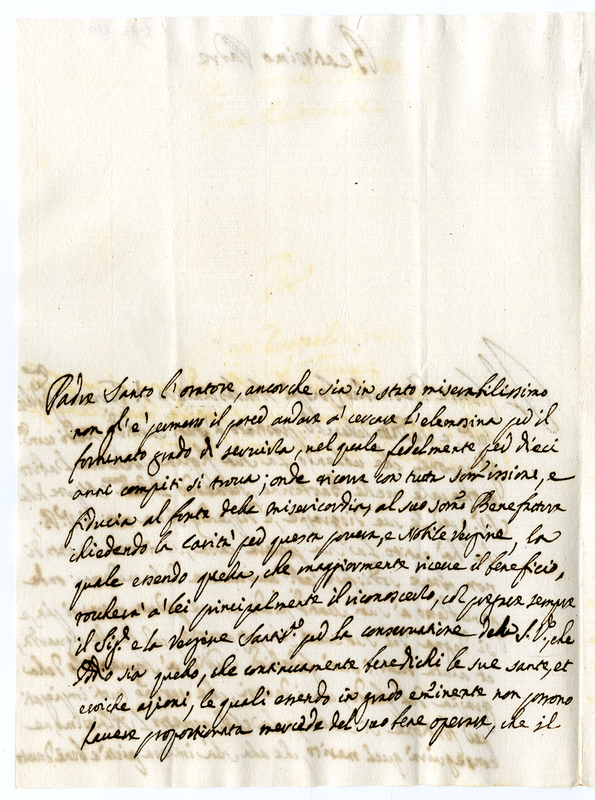 Padre Santo l'oratore, ancorche sia in stato miserabilissimo
non gl'è permesso il poter andare à cercare l'elemosina per il
fortunato grado di servirla, nel quale fedelmente per dieci
anni compiti si trova; onde ricorre con tutta som.issione, e
fiducia al fonte della misericordia, al suo som.o Benefattore
chiedendo la carità per questa povera, e Nobile Vergine, la
quale essendo quella, che maggiormente riceve il beneficio,
toccherà à lei principalmente il riconoscerlo, col pregare sempre
il Sig.e e la Vergine Santiss.a per la conservatione della S.V., che
Iddio sia quello, che continuamente benedichi le sue sante, et
eroiche azioni, le quali essendo in grado em.inente non possono
havere proportionata mercede del suo bene operare, che il